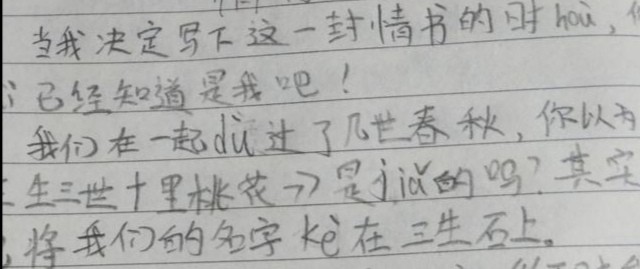 当我决定写下这一封情书的时hoù，
已经知道是我吧！
我们在一起dù过了几世春秋，你以为
生三世十里桃花》是jiǎ的吗？其实
将我们的名字kè在三生石上。